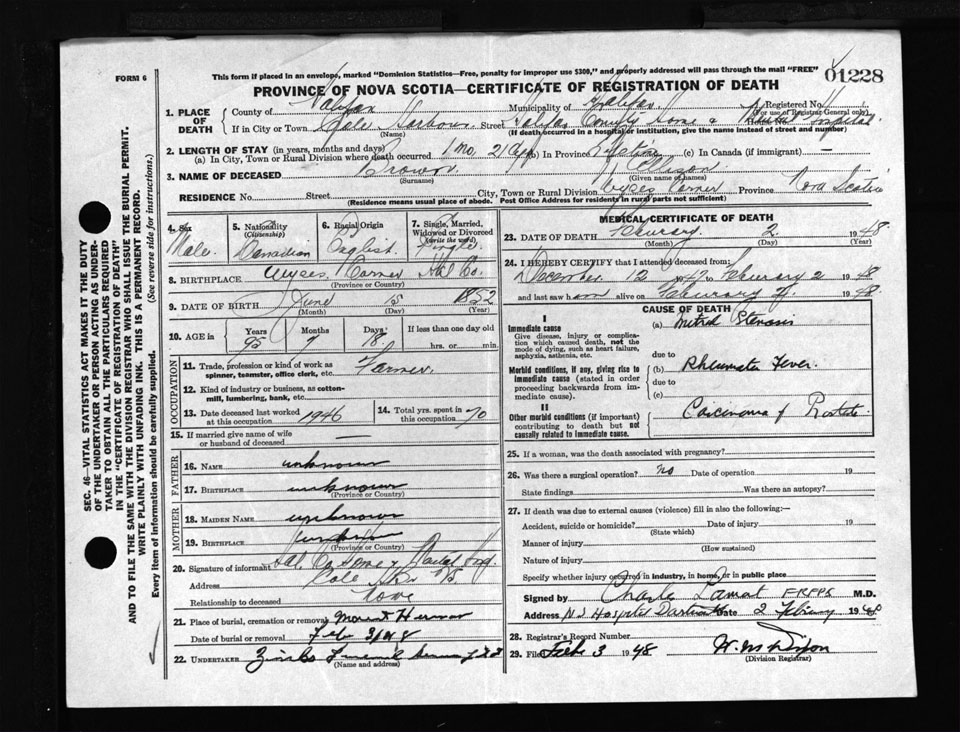 FORM 6
This form if placed in an envelope, marked "Dominion Statistics—Free, penalty for improper use $300," and properly addressed will pass through the mail "FREE"
01228
PROVINCE OF NOVA SCOTIA—CERTIFICATE OF REGISTRATION OF DEATH
1. PLACE OF DEATH
County of Halifax Municipality of Halifax Registered No.
(For use of Registrar General only)
If in City or Town Cole Harbour Street Halifax County Home & Mental Hospital
(Name) (If death occurred in a hospital or institution, give the name instead of street and number)
2. LENGTH OF STAY (in years, months and days)
(a) In City, Town or Rural Division where death occurred 1 mo, 21 (b) In Province Lifetime (c) In Canada (if immigrant) —
3. NAME OF DECEASED Brown
(Surname) (Given name or names)
RESIDENCE No. Street City, Town or Rural Division Corner Province Nova Scotia
(Residence means usual place of abode. Post Office Address for residents in rural parts not sufficient)
4. Sex Male
5. Nationality (Citizenship) Canadian
6. Racial Origin English
7. Single, Married, Widowed or Divorced (write the word) Single
8. BIRTHPLACE Corner Hal Co.
(Province or Country)
9. DATE OF BIRTH June 15 1852
(Month) (Day) (Year)
10. AGE in Years Months Days If less than one day old
95 7 18 hrs. or min.
OCCUPATION
11. Trade, profession or kind of work as spinner, teamster, office clerk, etc. Farmer
12. Kind of industry or business, as cotton-mill, lumbering, bank, etc.
13. Date deceased last worked at this occupation 1946
14. Total yrs. spent in this occupation 70
15. If married give name of wife or husband of deceased —
FATHER
16. NAME unknown
17. BIRTHPLACE unknown
(Province or Country)
MOTHER
18. MAIDEN NAME unknown
19. BIRTHPLACE unknown
(Province or Country)
20. Signature of informant Hal Co Home & Mental Hosp.
Address Cole Hbr NS
Relationship to deceased none
21. Place of burial, cremation or removal Mount Hermon
Date of burial or removal Feb 3/48
22. UNDERTAKER Funeral
(Name and address)
MEDICAL CERTIFICATE OF DEATH
23. DATE OF DEATH February 2 1948
(Month) (Day) (Year)
24. I HEREBY CERTIFY that I attended deceased from:
December 12 1947 February 2 1948
and last saw h alive on February 1948
CAUSE OF DEATH
I
Immediate cause
Give disease, injury or complication which caused death, not the mode of dying, such as heart failure, asphyxia, asthenia, etc.
(a) Mitral Stenosis
due to
Morbid conditions, if any, giving rise to immediate cause (stated in order proceeding backwards from immediate cause).
(b) Rheumatic Fever
due to
(c)
II
Other morbid conditions (if important) contributing to death but not causally related to immediate cause.
Carcinoma of Prostate
25. If a woman, was the death associated with pregnancy?
26. Was there a surgical operation? no Date of operation 19
State findings Was there an autopsy?
27. If death was due to external causes (violence) fill in also the following:—
Accident, suicide or homicide? Date of injury 19
(State which)
Manner of injury
(How sustained)
Nature of injury
Specify whether injury occurred in industry, in home, or in public place
Signed by Charles Lamont M.D.
Address N S Hospital Dartmouth Date 2 February 1948
28. Registrar's Record Number
29. Filed Feb 3 1948
(Division Registrar)
SEC. 46—VITAL STATISTICS ACT MAKES IT THE DUTY
OF THE UNDERTAKER OR PERSON ACTING AS UNDERTAKER TO OBTAIN ALL THE PARTICULARS REQUIRED
IN THE "CERTIFICATE OF REGISTRATION OF DEATH"
AND TO FILE THE SAME WITH THE DIVISION REGISTRAR WHO SHALL ISSUE THE BURIAL PERMIT.
WRITE PLAINLY WITH UNFADING INK. THIS IS A PERMANENT RECORD.
Every item of information should be carefully supplied. (See reverse side for instructions.)